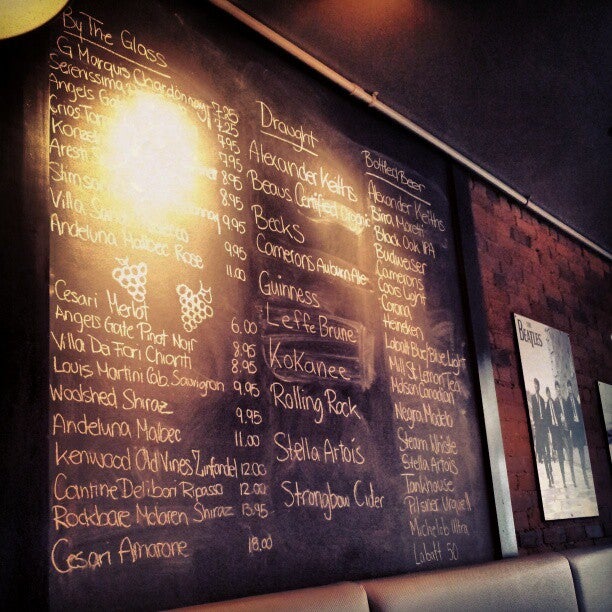 By The Glass
G Marquis Chardonnay 7.25
Serenissima 7.25
Angels Gate 7.95
Konzel 7.95
Aresti 8.95
8.95
Villa San 9.95
Andeluna Malbec Rose 11.00
Cesari Merlot 6.00
Angels Gate Pinot Noir 8.95
Villa Da Fiori Chianti 8.95
Louis Martini Cab. Sauvignon 9.95
Woolshed Shiraz 9.95
Andeluna Malbec 11.00
Kenwood Old Vines Zinfandel 12.00
Cantine Delibori Ripasso 12.00
Rockbare Mclaren Shiraz 13.95
Cesari Amarone 18.00
Draught
Alexander Keiths
Beaus Certified Organic
Becks
Camerons Auburn Ale
Guinness
Leffe Brune
Kokanee
Rolling Rock
Stella Artois
Strongbow Cider
Bottled Beer
Alexander Keiths
Birra Moretti
Black Oak IPA
Budweiser
Camerons
Coors Light
Corona
Heineken
Labatt Blue/Blue Light
Mill St Lemon Tea
Molson Canadian
Negra Modelo
Steam Whistle
Stella Artois
Tankhouse
Pilsner Urquell
Michelob Ultra
Labatt 50
THE
BEATLES